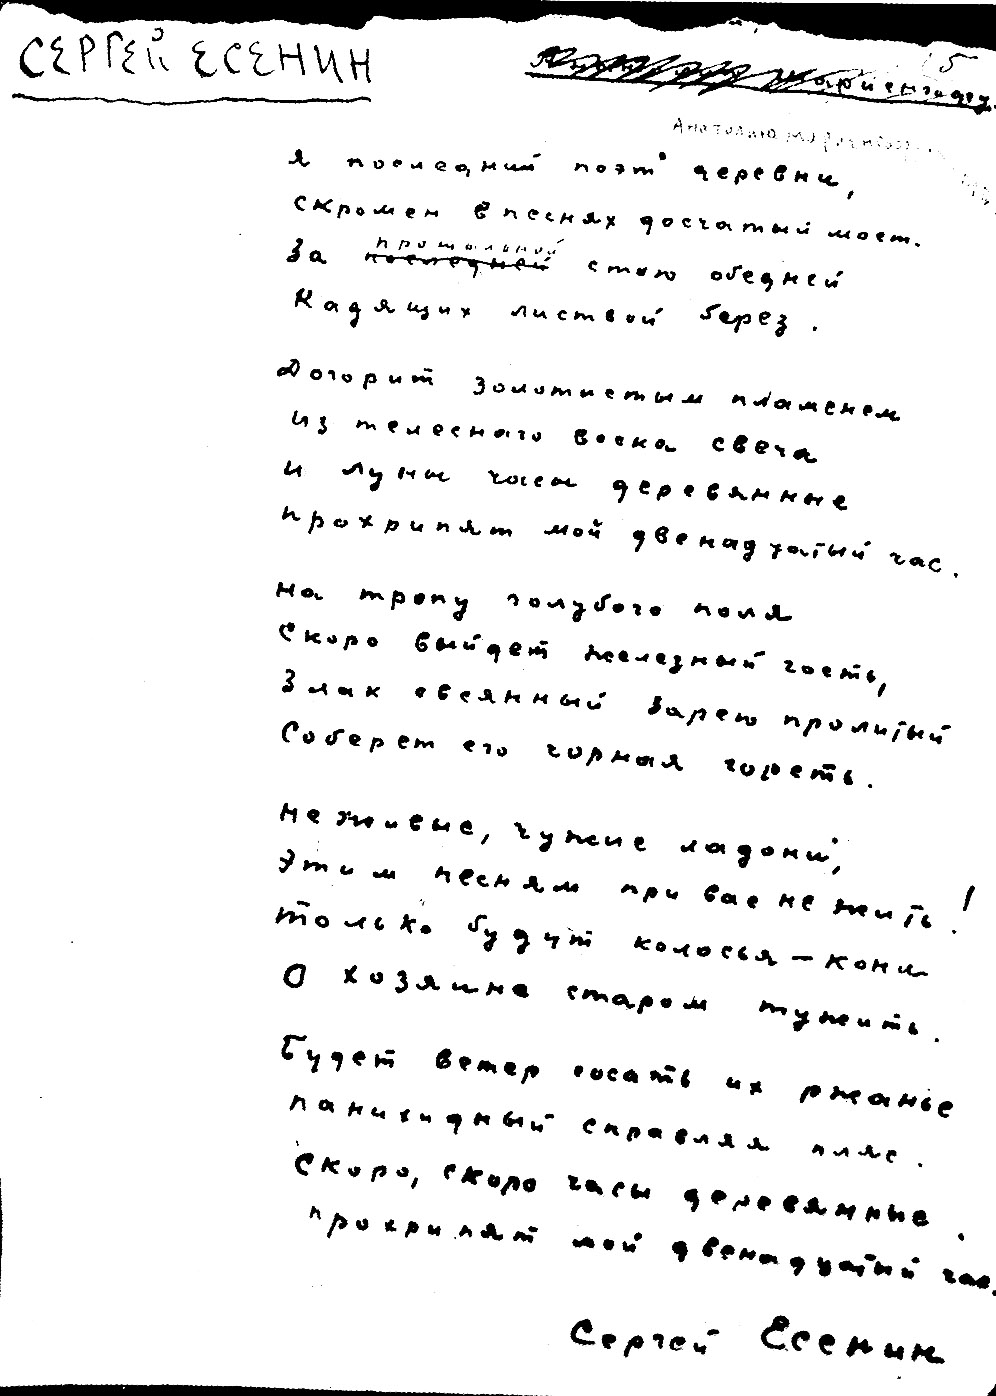 СЕРГЕЙ ЕСЕНИН
5
Мариенгофу.
Анатолию Мариенгофу
Я последний поэт деревни,
скромен в песнях досчатый мост.
За последней прощальной стою обедней
Кадящих листвой берез.
Догорит золотистым пламенем
из телеснаго воска свеча
и луны часы деревянные
прохрипят мой двенадцатый час.
на тропу голубого поля
скоро выйдет железный гость,
Злак овсянный зарею пролитый
Соберет его чорная горсть.
не живые, чужие ладони,
этим песням при вас не жить!
только будут колосья – кони
О хозяине старом тужить.
Будет ветер сосать их ржанье
панихидный справляя пляс.
Скоро, скоро часы деревянные
прохрипят мой двенадцатый час.
Сергей Есенин